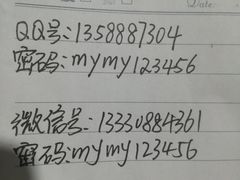 Date:
QQ号:1358887304
密码:mymy123456
微信号:13330884361
密码:mymy123456